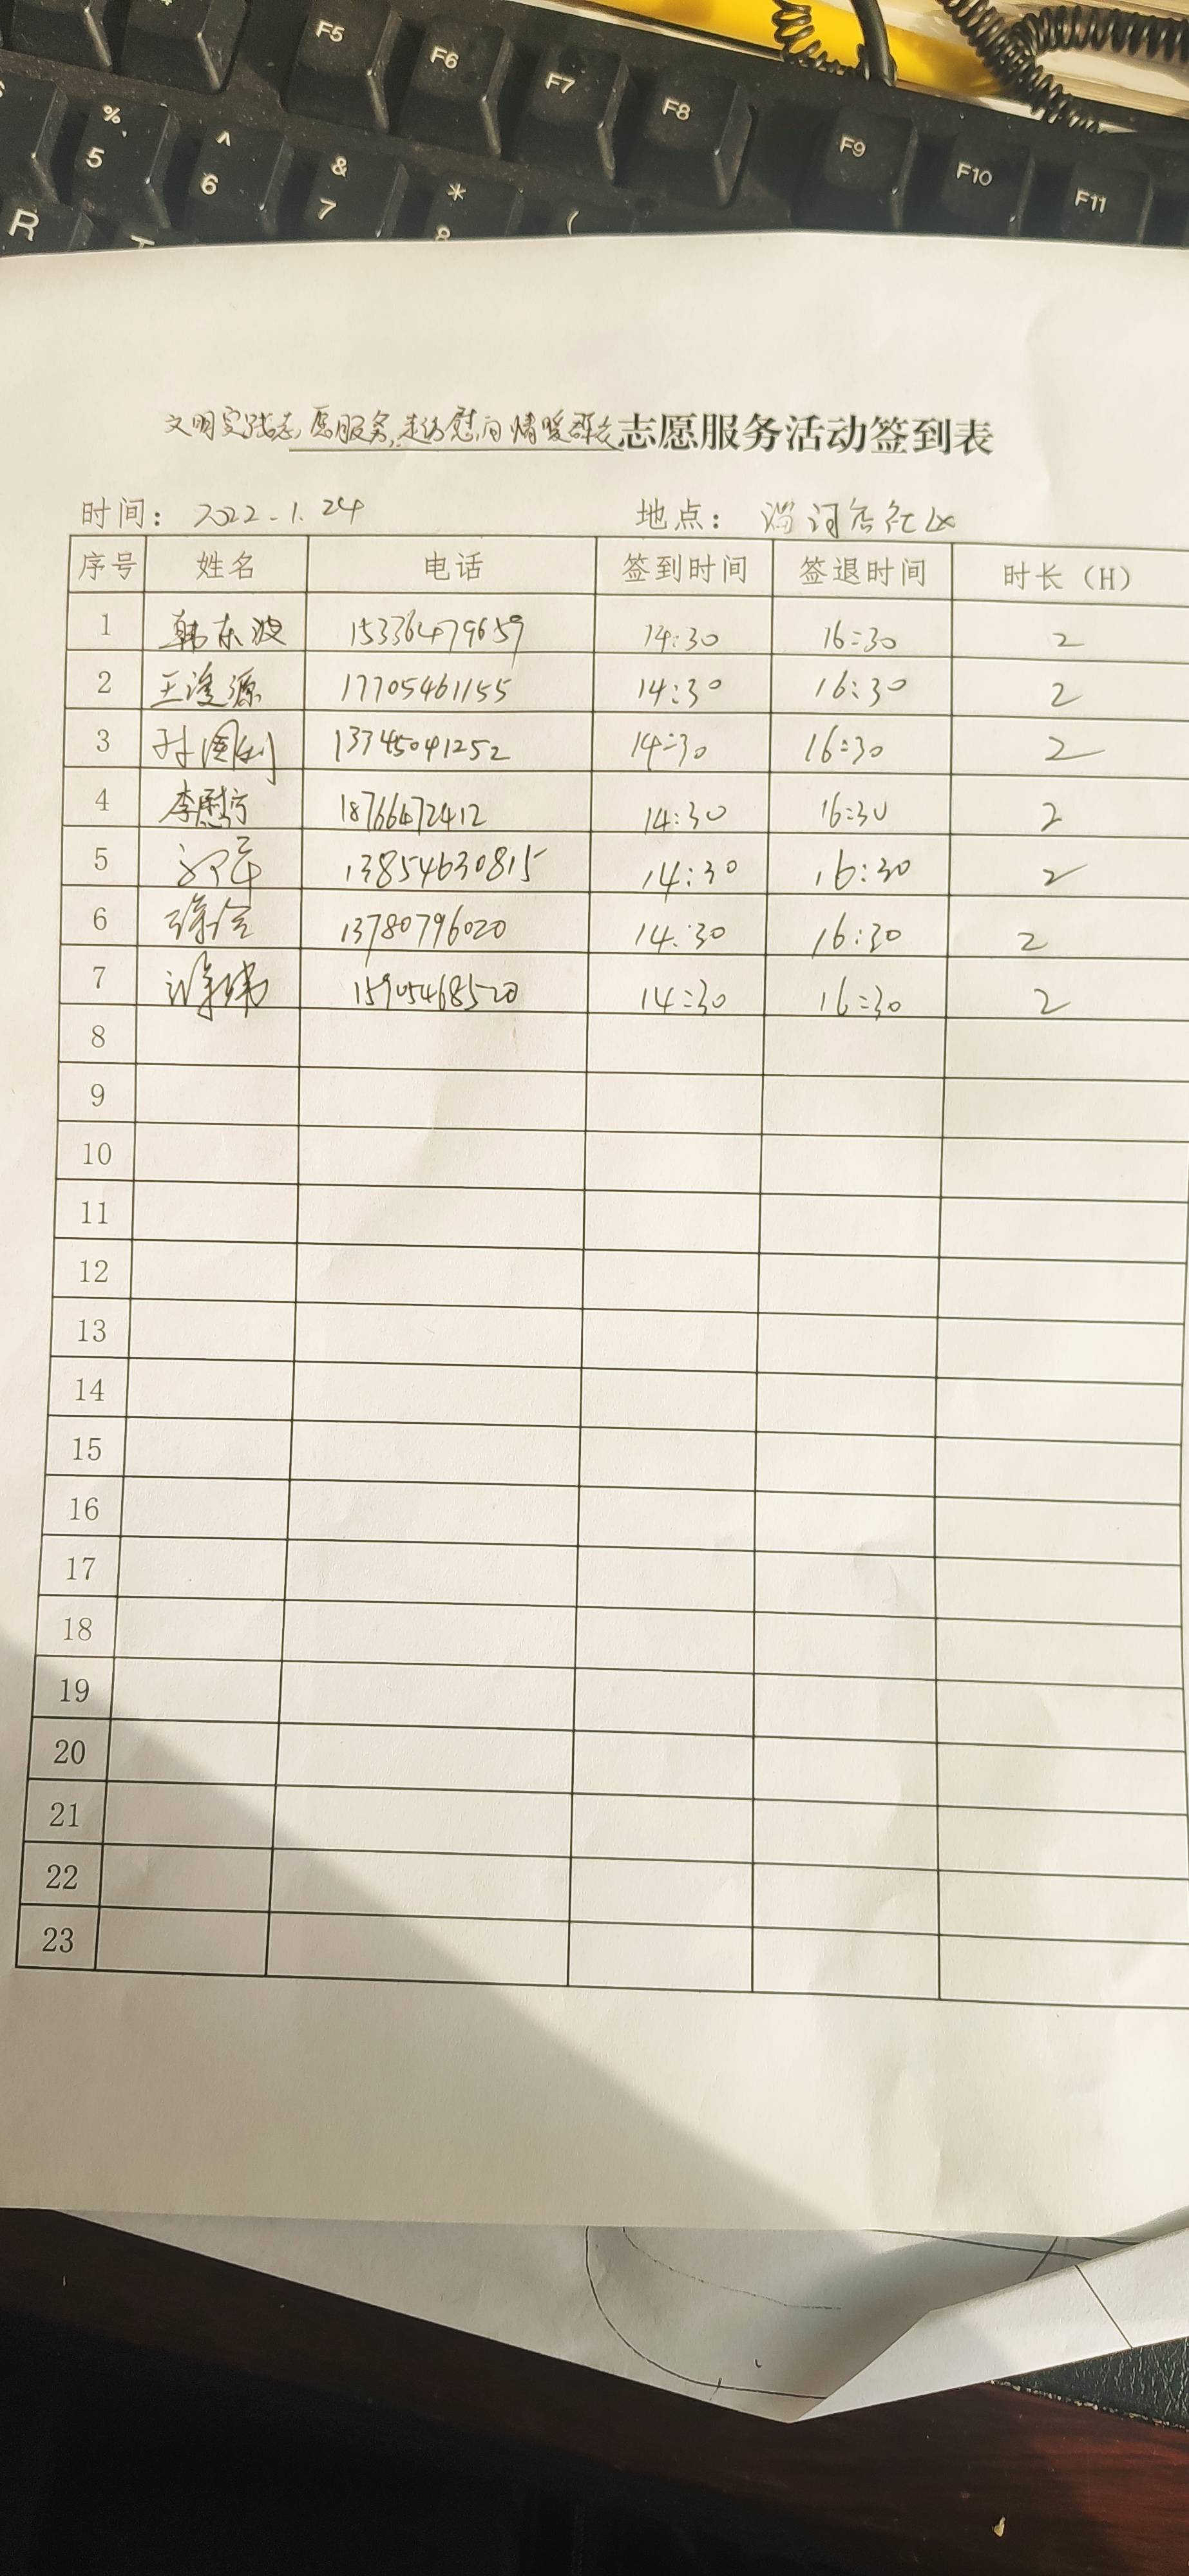 F5 F6 F7 F8 F9 F10 F11
% 5 ^ 6 & 7 * 8 (
R T
文明实践志愿服务,走访慰问情暖群众志愿服务活动签到表
时间: 2022.1.24 地点: 淄河店社区
序号 姓名 电话 签到时间 签退时间 时长(H)
1 韩东波 15336479659 14:30 16:30 2
2 王浚源 17705461155 14:30 16:30 2
3 孙国利 13345041252 14:30 16:30 2
4 李慰宁 18766472412 14:30 16:30 2
5 13854630815 14:30 16:30 2
6 13780796020 14:30 16:30 2
7 15905468520 14:30 16:30 2
8
9
10
11
12
13
14
15
16
17
18
19
20
21
22
23